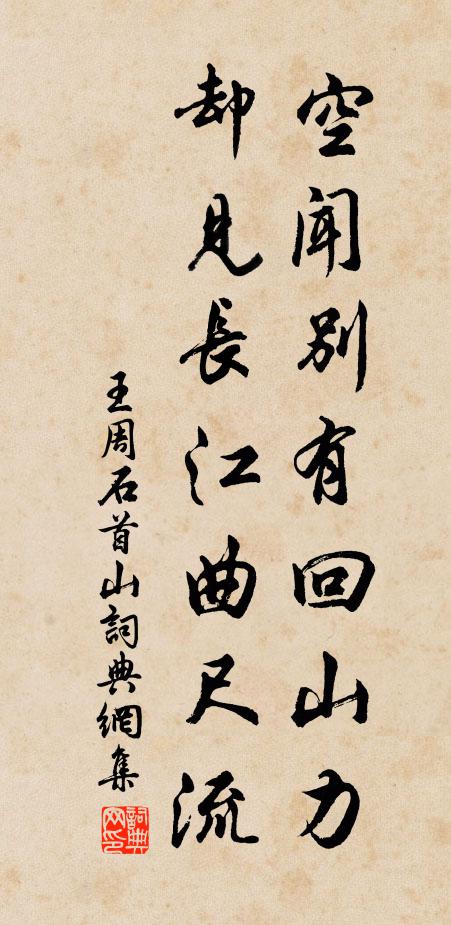 空聞別有回山力
却見長江曲尺流
王周石首山詞典網集
詞典网印